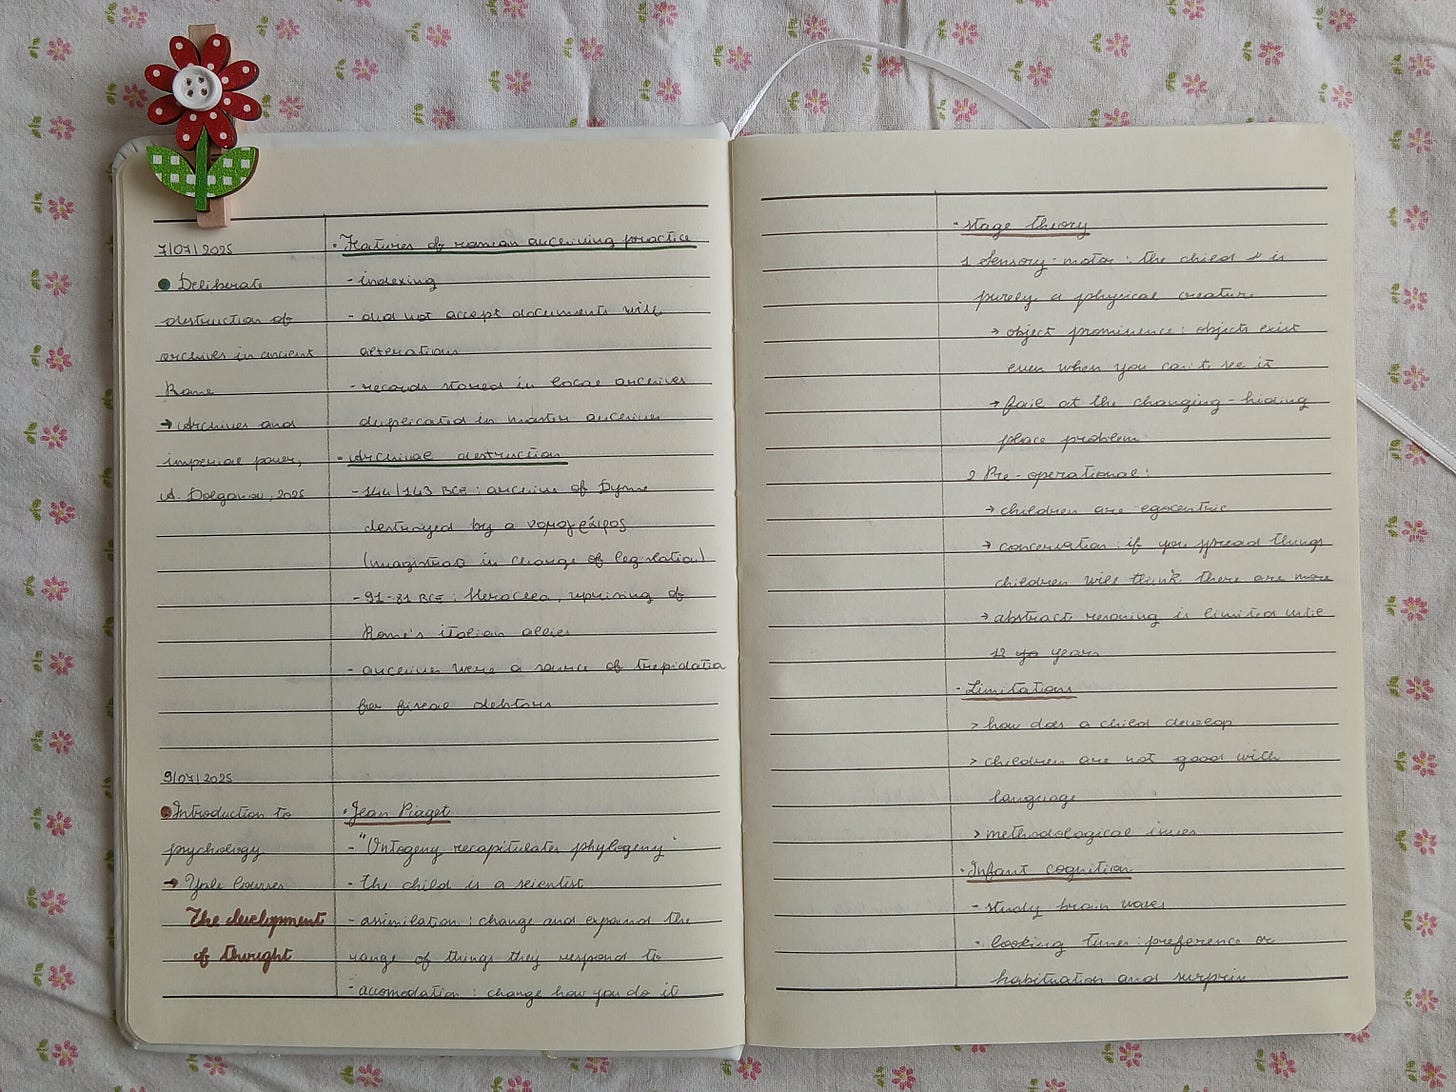 7/07/2025
Deliberate
destruction of
archives in ancient
Rome
→ Archives and
imperial power,
A. Dolganov, 2025
· Features of roman archiving practice
- indexing
- did not accept documents with
alterations
- records stored in local archives
duplicated in master archives
· Archival destruction
- 144/143 BCE : archive of Dyme
destroyed by a νομογράφος
(magistrat in charge of legislation)
- 91-81 BCE : Heraclea, uprising of
Rome's italian allies
- archives were a source of trepidation
for fiscal debtors
9/07/2025
Introduction to
psychology
→ Yale Courses
The development
of thought
· Jean Piaget
- "Ontogeny recapitulates phylogeny"
- the child is a scientist
- assimilation : change and expand the
range of things they respond to
- accomodation : change how you do it
· Stage theory
1 Sensory-motor : the child is
purely a physical creature
→ object prominence : objects exist
even when you can't see it
→ fail at the changing-hiding
place problem
2 Pre-operational :
→ children are egocentric
→ conservation : if you spread things
children will think there are more
→ abstract resoning is limited until
12 years
· Limitations
> how does a child develop
> children are not good with
language
> methodological issues
· Infant cognition
- study brain waves
· looking times : preference or
habituation and surprise